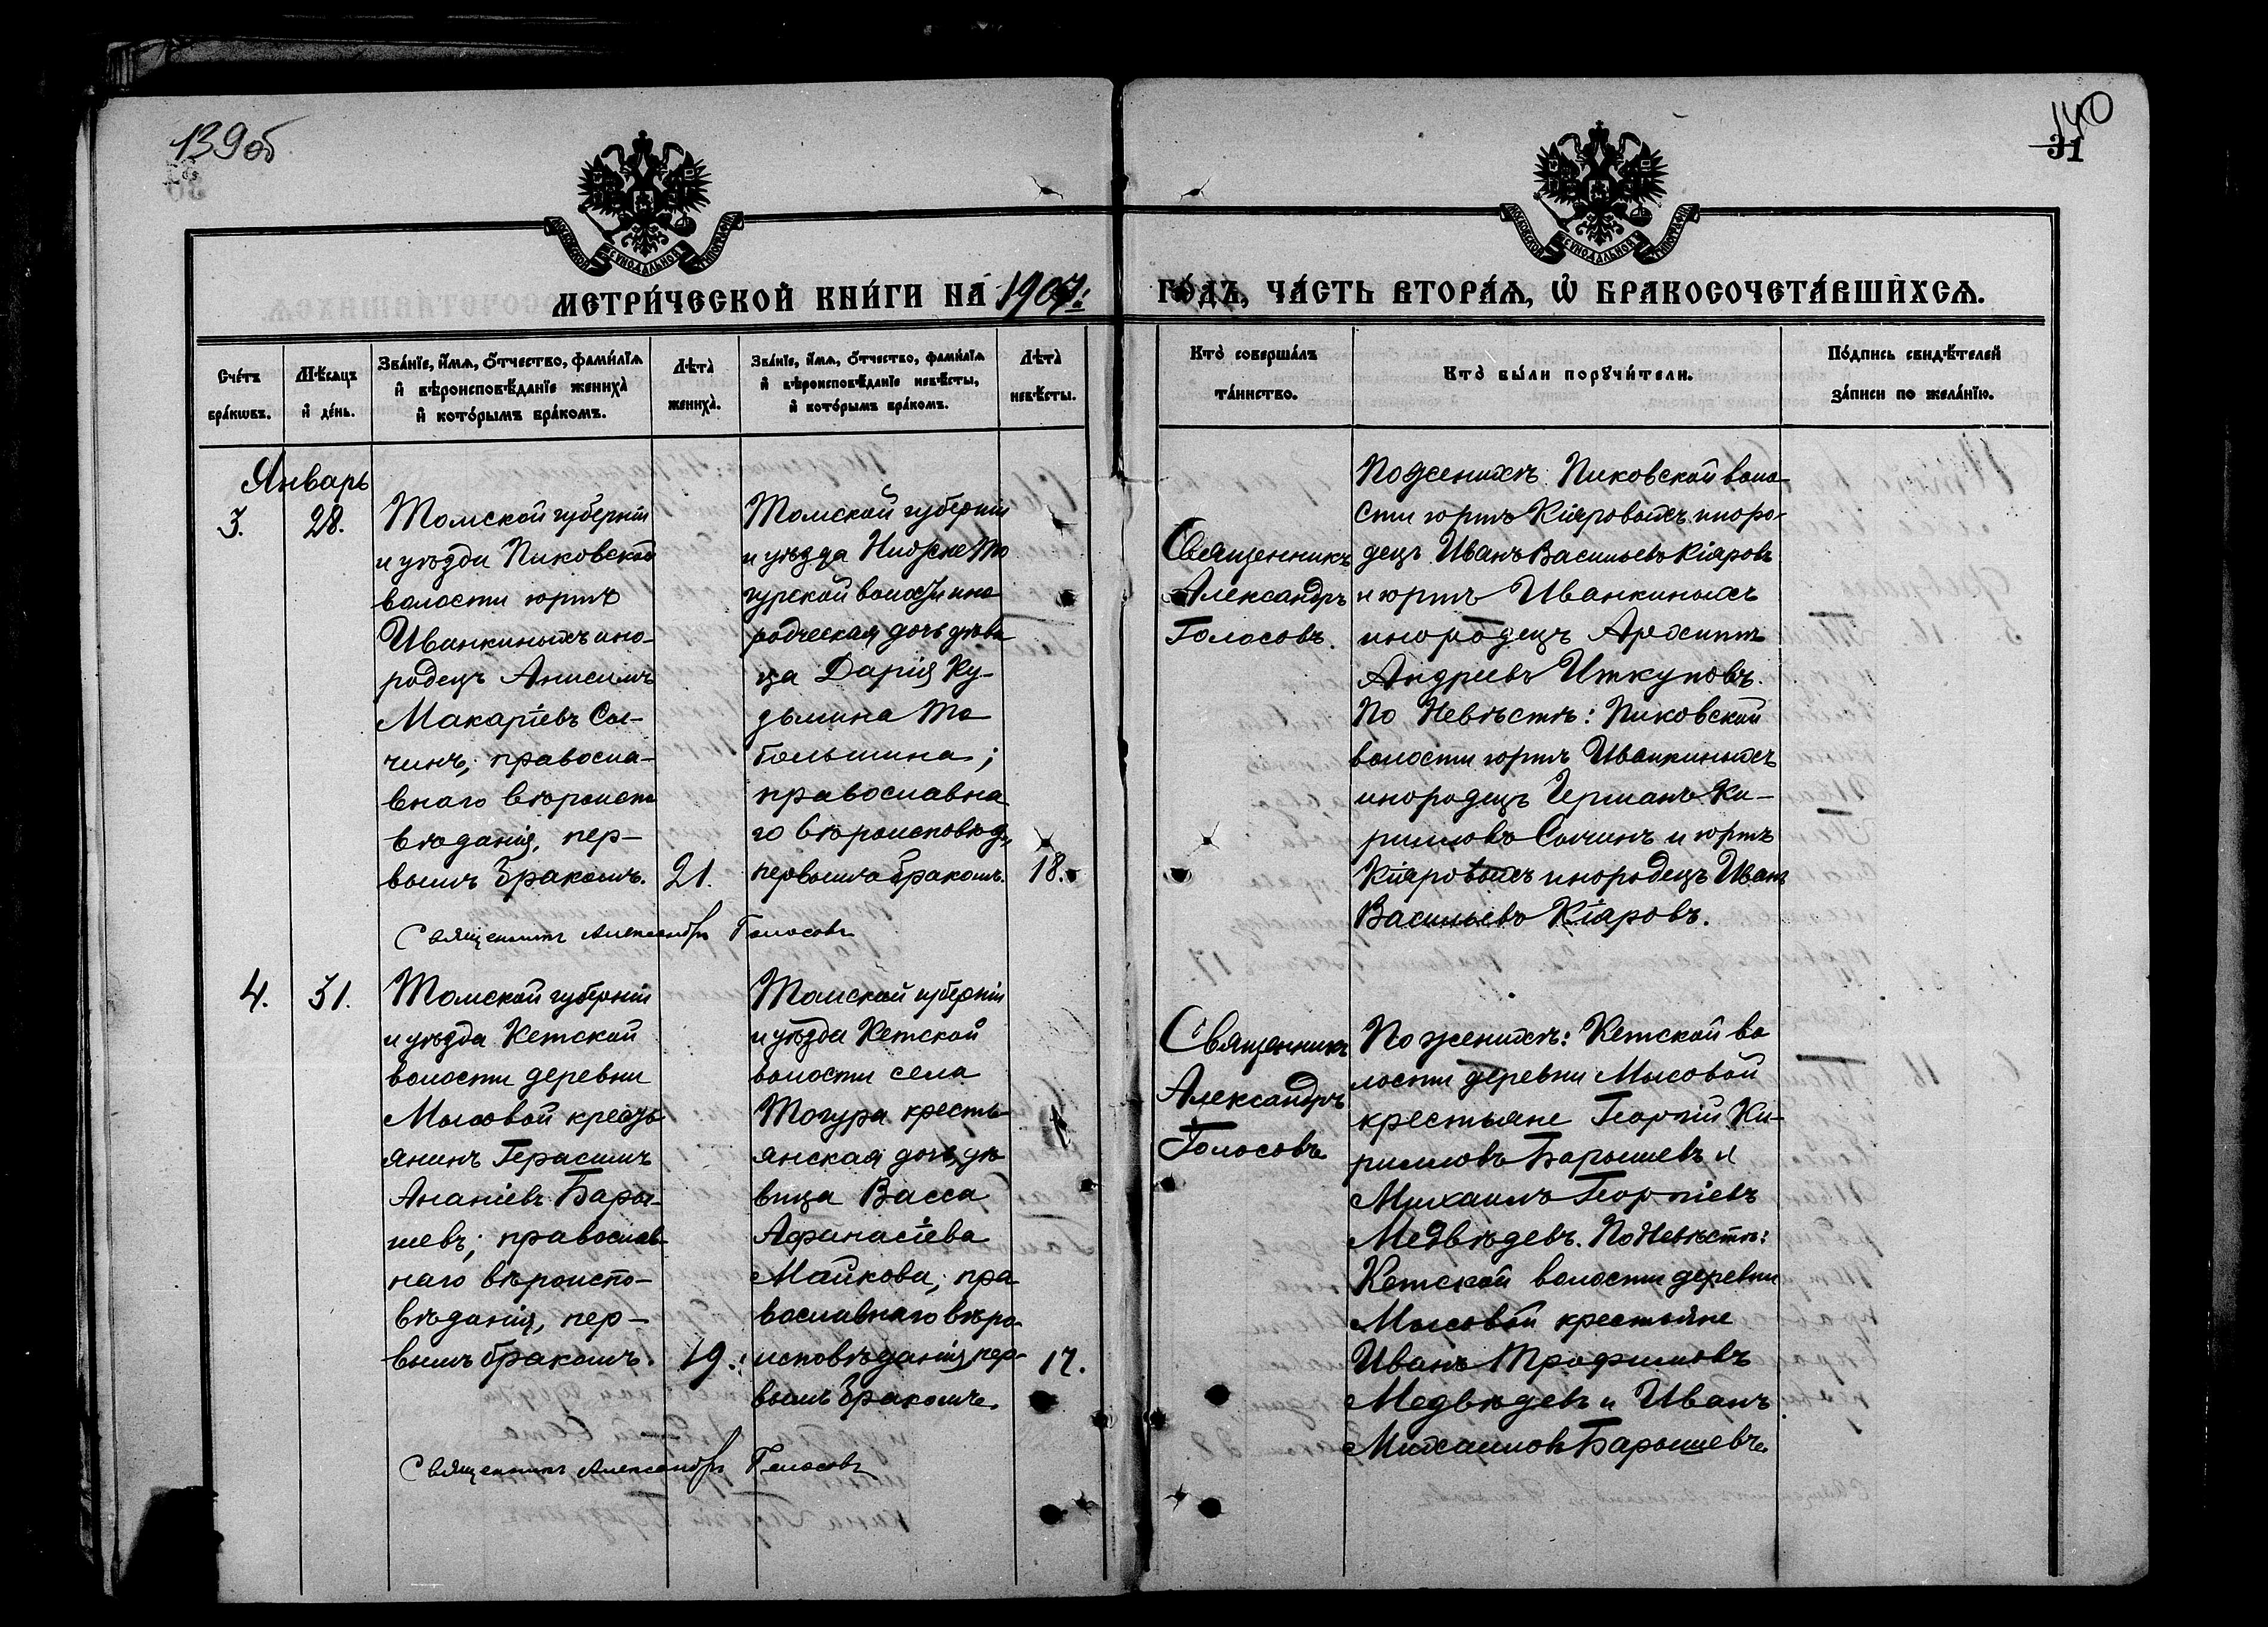 139об
140
31
МЕТРИ́ЧЕСКОЙ КНИ́ГИ НА 1907:
ГО́ДЪ, ЧА́СТЬ ВТОРА́Ѧ, Ѡ БРАКОСОЧЕТА́ВШИХСѦ.
Сче́тъ бра́кѡвъ.
Мѣ́сѧцъ и де́нь.
Зва́нїе, и́мѧ, ѻ́тчество, фами́лїѧ и вѣроисповѣ́данїе жениха̀ и кото́рымъ бра́комъ.
Лѣта̀ жениха̀.
Зва́нїе, и́мѧ, ѻ́тчество, фами́лїѧ и вѣроисповѣ́данїе невѣ́сты, и кото́рымъ бра́комъ.
Лѣта̀ невѣ́сты.
Кто̀ соверша́лъ та́инство.
Кто̀ бы́ли порꙋчи́тели.
По́дпись свидѣ́телей за́писи по жела́нїю.
Январь
3.
28.
Томской губернiи
и уѣзда Пиковской
волости юртъ
Иванкиныхъ ино-
родецъ Анисимъ
Макарiевъ Сол-
чинъ; правосла-
внаго вѣроиспо
вѣданiя, пер-
вымъ бракомъ.
21.
Томской губернiи
и уѣзда Нижне То
гурской волости ино
родческая дочь дѣви
ца Дарiя Ку-
дьмина То
больжина;
православна
го вѣроисповѣд.,
первымъ бракомъ.
18.
Священникъ Александръ Голосовъ
Священникъ
Александръ
Голосовъ.
По женихѣ: Пиковской воло-
сти юртъ Кiяровыхъ иноро-
децъ Иванъ Васильевъ Кiяровъ
и юртъ Иванкиныхъ
инородецъ
Андреевъ Иткуповъ.
По Невѣстѣ: Пиковской
волости юртъ Иванкиныхъ
инородецъ Германъ Ки-
рилловъ Солчинъ и юртъ
Кiяровыхъ инородецъ Иванъ
Васильевъ Кiяровъ.
4.
31.
Томской губернiи
и уѣзда Кетской
волости деревни
Мысовой кресть
янинъ Герасимъ
Ананiевъ Бары-
шевъ; православ-
наго вѣроиспо-
вѣданiя, пер-
вымъ бракомъ.
19.
Томской губернiи
и уѣзда Кетской
волости села
Тогура кресть-
янская дочь, дѣ
вица Васса
Афанасiева
Майкова; пра
вославнаго вѣро-
исповѣданiя, пер-
вымъ бракомъ.
17.
Священникъ Александръ Голосовъ
Священникъ
Александръ
Голосовъ
По женихѣ: Кетской во
лости деревни Мысовой
крестьяне Георгiй Ки-
рилловъ Барышевъ и
Михаилъ Георгiевъ
Медвѣдевъ. По Невѣстѣ:
Кетской волости деревни
Мысовой крестьяне
Иванъ Трофимовъ
Медвѣдевъ и Иванъ
Михаиловъ Барышевъ.